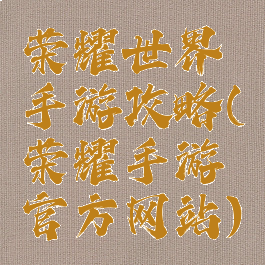 荣耀世界
手游攻略(
荣耀手游
官方网站)